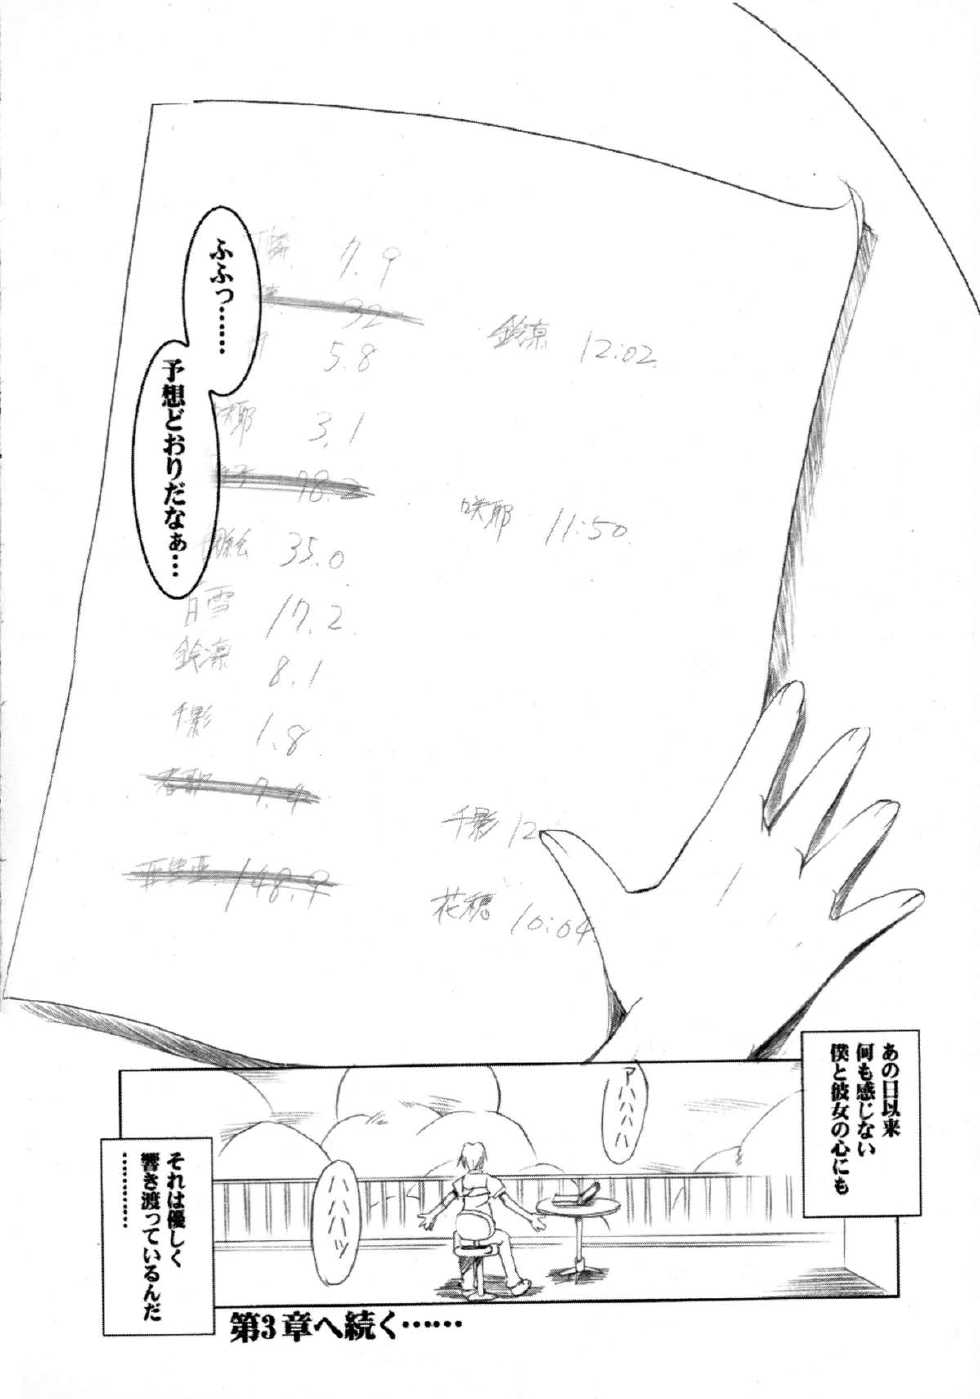 ふふっ……
予想どおりだなぁ…
7.9
32
鈴凛 12:02
5.8
3.1
78.2
咲耶 11:50
35.0
白雪 17.2
鈴凛 8.1
千影 1.8
春歌 7.4
千影 12
亞里亞 148.9
花穂 10:04
あの日以来
何も感じない
僕と彼女の心にも
アハハハハ
ハハハハッ
それは優しく
響き渡っているんだ
…………
第3章へ続く……